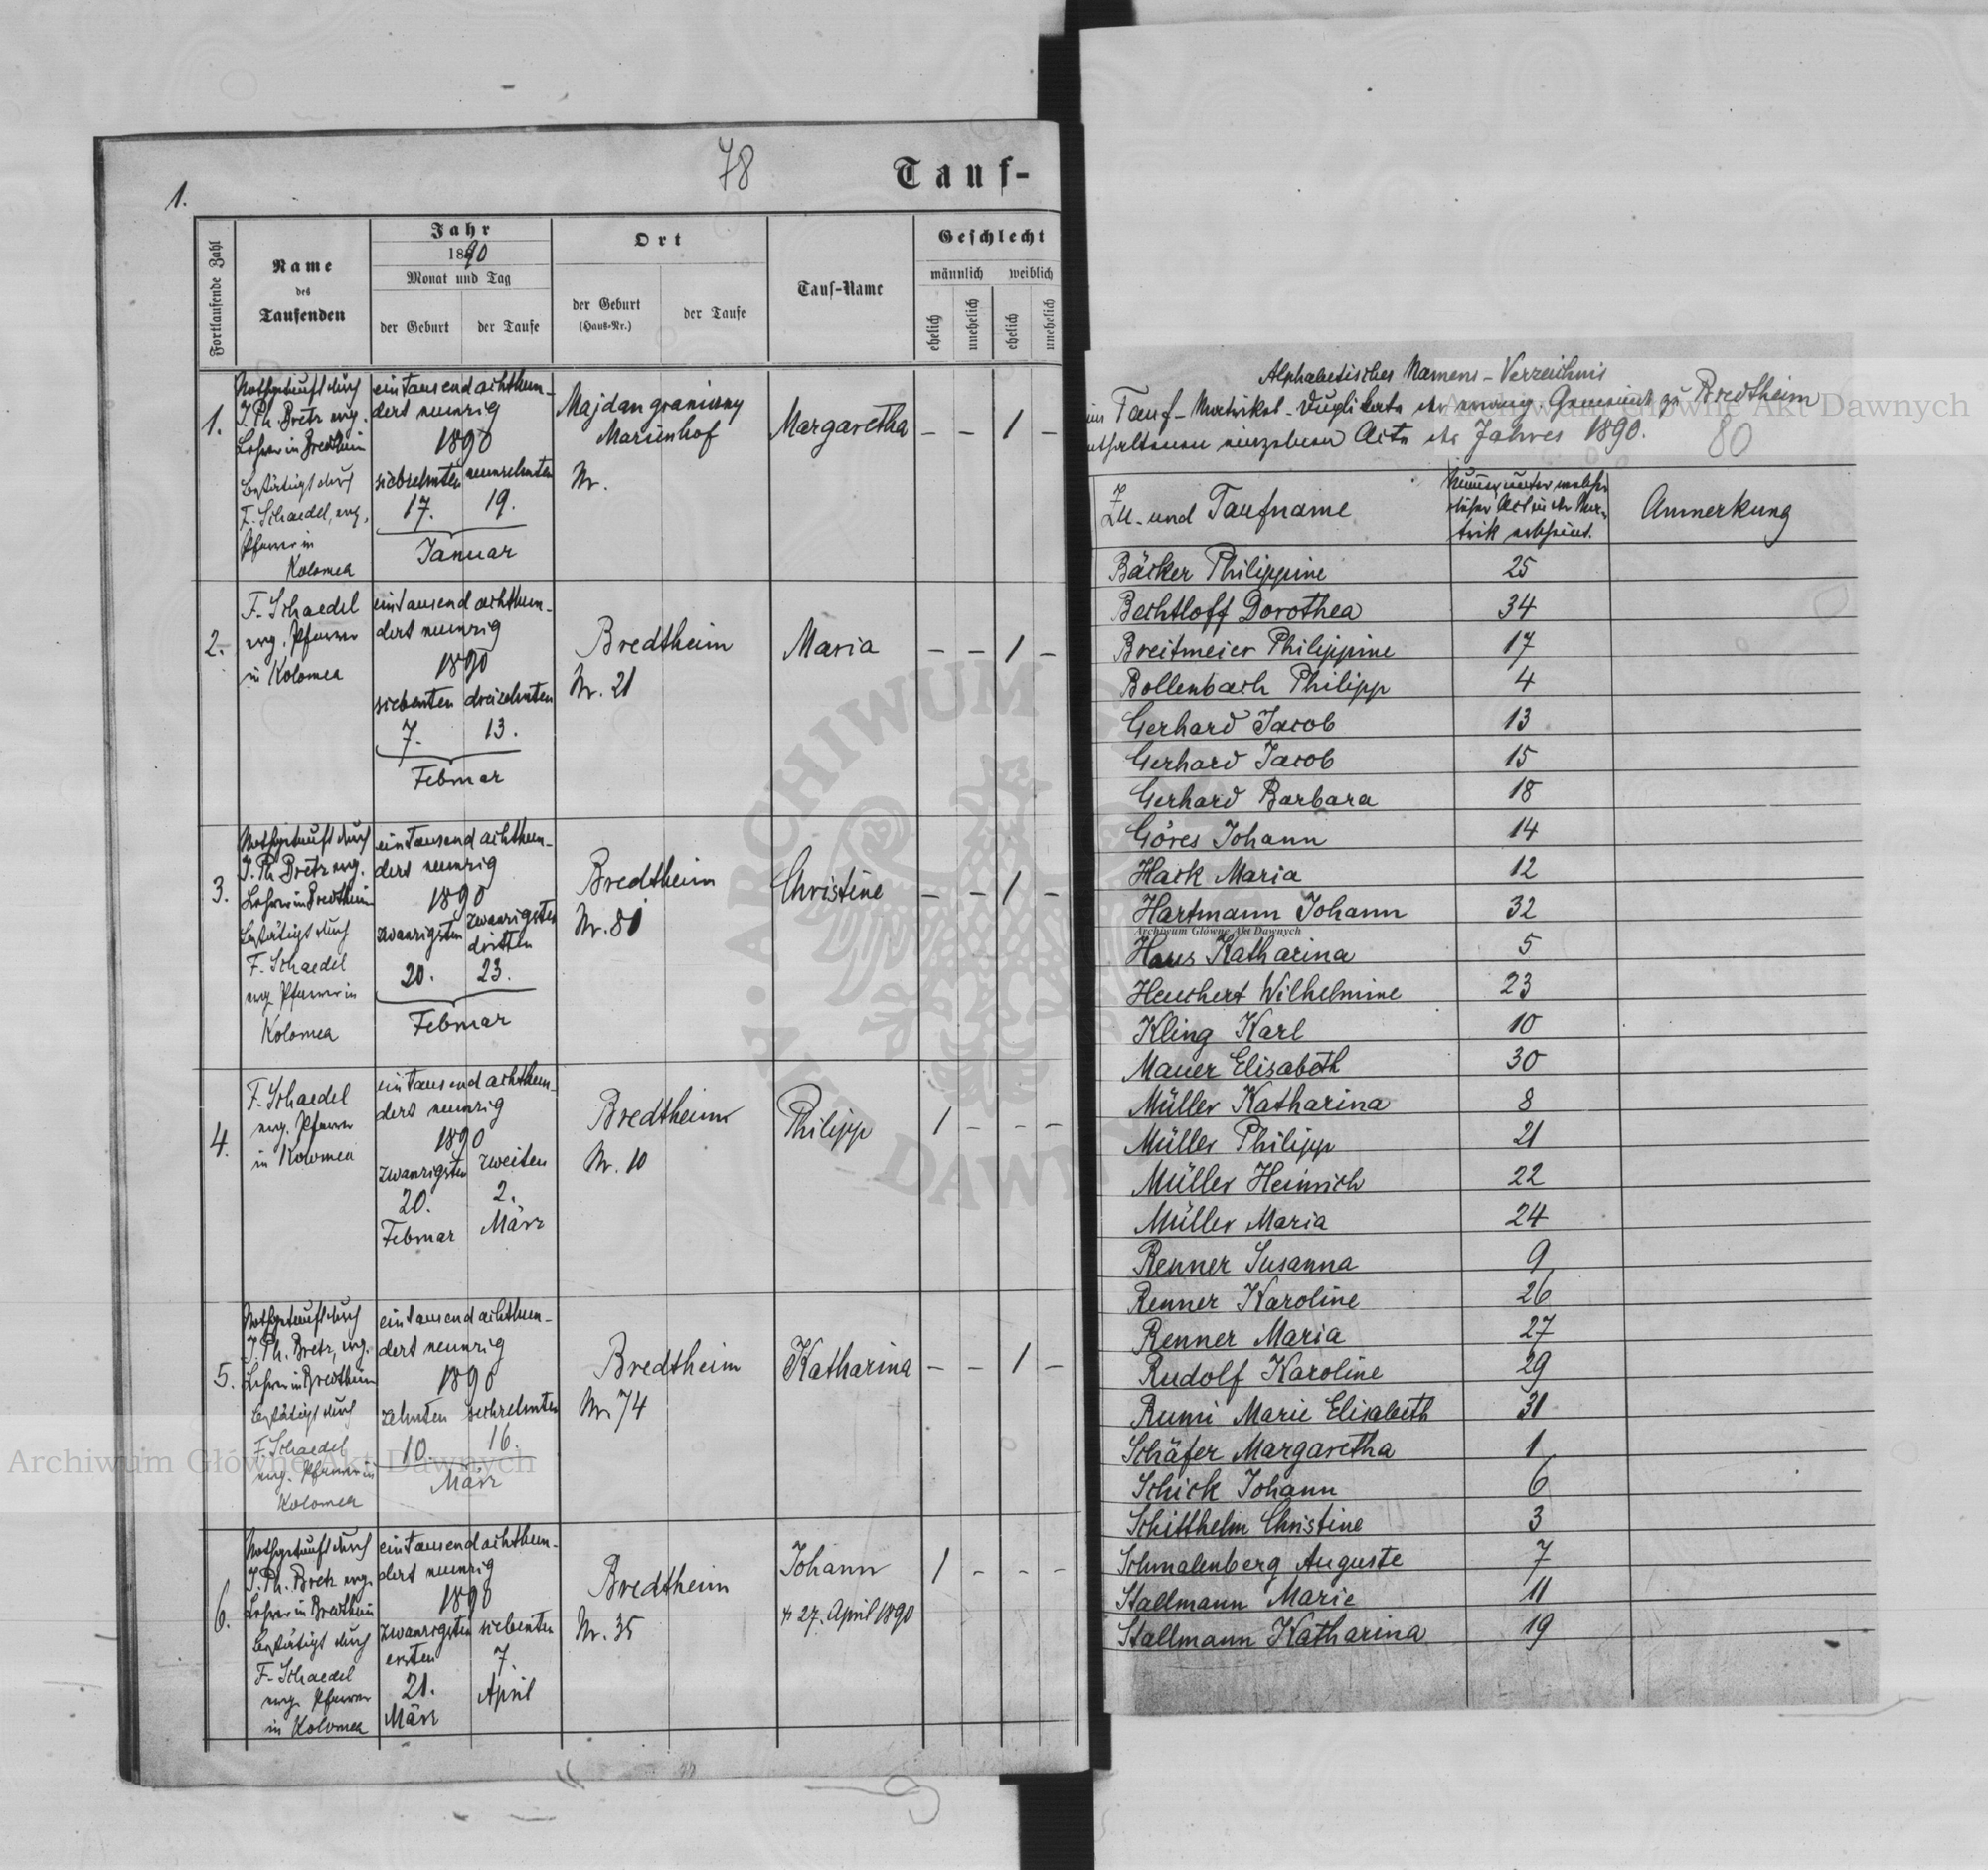 78
Tauf-
1.
Fortlaufende Zahl
Name
des
Taufenden
Jahr
1890
Monat und Tag
der Geburt
der Taufe
Ort
der Geburt
(Haus-Nr.)
der Taufe
Tauf-Name
Geschlecht
männlich
weiblich
ehelich
unehelich
ehelich
unehelich
1.
Nothgetauft durch
J. Ph. Bretz evg.
Lehrer in Bredtheim
bestätigt durch
F. Schaedel, evg.
Pfarrer in
Kolomea
eintausend achthun-
dert neunzig
1890
siebzehnten neunzehnten
17. 19.
Januar
Majdan graniczny
Marienhof
Nr.
Margaretha
– – 1 –
2.
F. Schaedel
evg. Pfarrer
in Kolomea
eintausend achthun-
dert neunzig
1890
siebenten dreizehnten
7. 13.
Februar
Bredtheim
Nr. 21
Maria
– – 1 –
3.
Nothgetauft durch
J. Ph. Bretz evg.
Lehrer in Bredtheim
bestätigt durch
F. Schaedel
evg. Pfarrer in
Kolomea
eintausend achthun-
dert neunzig
1890
zwanzigsten zwanzigsten
dritten
20. 23.
Februar
Bredtheim
Nr. 81
Christine
– – 1 –
4.
F. Schaedel
evg. Pfarrer
in Kolomea
eintausend achthun-
dert neunzig
1890
zwanzigsten zweiten
20. 2.
Februar März
Bredtheim
Nr. 10
Philipp
1 – – –
5.
Nothgetauft durch
J. Ph. Bretz, evg.
Lehrer in Bredtheim
bestätigt durch
F. Schaedel
evg. Pfarrer in
Kolomea
eintausend achthun-
dert neunzig
1890
zehnten sechzehnten
10. 16.
März
Bredtheim
Nr. 74
Katharina
– – 1 –
6.
Nothgetauft durch
J. Ph. Bretz evg.
Lehrer in Bredtheim
bestätigt durch
F. Schaedel
evg. Pfarrer
in Kolomea
eintausend achthun-
dert neunzig
1890
zwanzigsten siebenten
ersten 7.
21. April
März
Bredtheim
Nr. 35
Johann
† 27. April 1890
1 – – –
Alphabetisches Namens-Verzeichnis
im Tauf-Matrikel-Duplikate der evang. Gemeinde zu Bredtheim
enthaltenen einzelnen Acte des Jahres 1890.
80
Zu- und Taufname
Nummer unter welcher
dieser Act in der Ma-
trik erscheint.
Anmerkung
Bäcker Philippine 25
Bechtloff Dorothea 34
Breitmeier Philippine 17
Bollenbach Philipp 4
Gerhard Jacob 13
Gerhard Jacob 15
Gerhard Barbara 18
Göres Johann 14
Hack Maria 12
Hartmann Johann 32
Archiwum Główne Akt Dawnych
Haus Katharina 5
Heuchert Wilhelmine 23
Kling Karl 10
Mauer Elisabeth 30
Müller Katharina 8
Müller Philipp 21
Müller Heinrich 22
Müller Maria 24
Renner Susanna 9
Renner Karoline 26
Renner Maria 27
Rudolf Karoline 29
Rumi Marie Elisabeth 31
Schäfer Margaretha 1
Schick Johann 6
Schitthelm Christine 3
Schmalenberg Auguste 7
Stallmann Marie 11
Stallmann Katharina 19
Archiwum Główne Akt Dawnych
Archiwum Główne Akt Dawnych